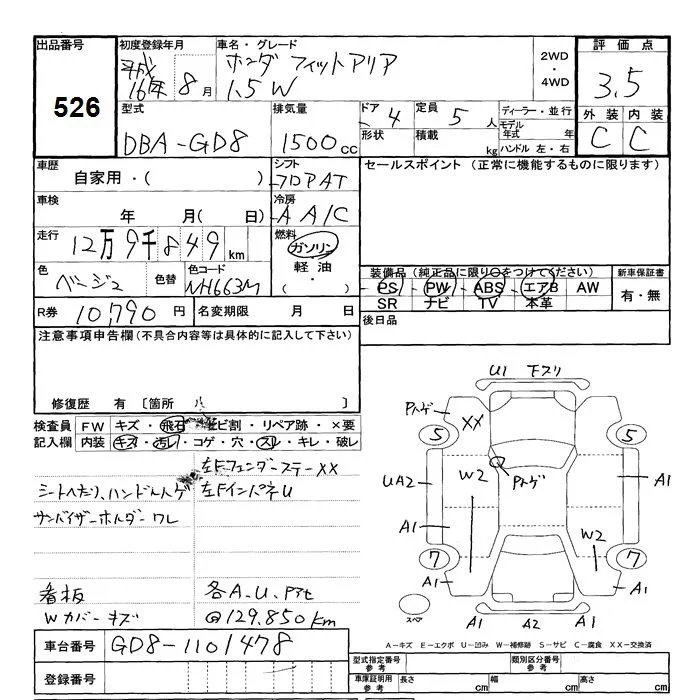 出品番号 初度登録年月 車名・グレード 2WD・4WD 評価点
526 平成16年8月 ホンダ フィットアリア 1.5W 3.5
型式 排気量 ドア 4 定員 5人 ディーラー・並行 外装 内装
DBA-GD8 1500cc 形状 積載 kg モデル年式 年 ハンドル 左・右 C C
車歴 シフト セールスポイント (正常に機能するものに限ります)
自家用・( ) フロアAT
車検 冷房
年 月( 日) A A/C
走行 燃料
12万9千849km ガソリン
色 色替 色コード 軽油
ベージュ NH663M ・( )
装備品 (純正品に限り○をつけてください) 新車保証書
PS・PW・ABS・エアB AW 有・無
SR ナビ TV 本革
R券 10,790円 名変期限 月 日
後日品
注意事項申告欄(不具合内容等は具体的に記入して下さい)
修復歴 有 〔箇所 〕
検査員 FW キズ・飛石・ヒビ割・リペア跡・×要
記入欄 内装 キズ・汚レ・コゲ・穴・スレ・キレ・破レ
左Fフェンダーステー XX
シートヘタリ、ハンドルハゲ 左FインパネU
サンバイザーホルダーワレ
看板 各A.U.
Wカバーキズ @129.850km
車台番号 GD8-1101478
登録番号
U1 下スリ
XX
5 5
W2
UA2 A1
A1 W2
7 7
A1 A1
スペア
A1 A2 A1
A-キズ E-エクボ U-凹み W-補修跡 S-サビ C-腐食 XX-交換済
型式指定番号 参考 類別区分番号 参考
車庫証明用 参考 長さ cm 幅 cm 高さ cm